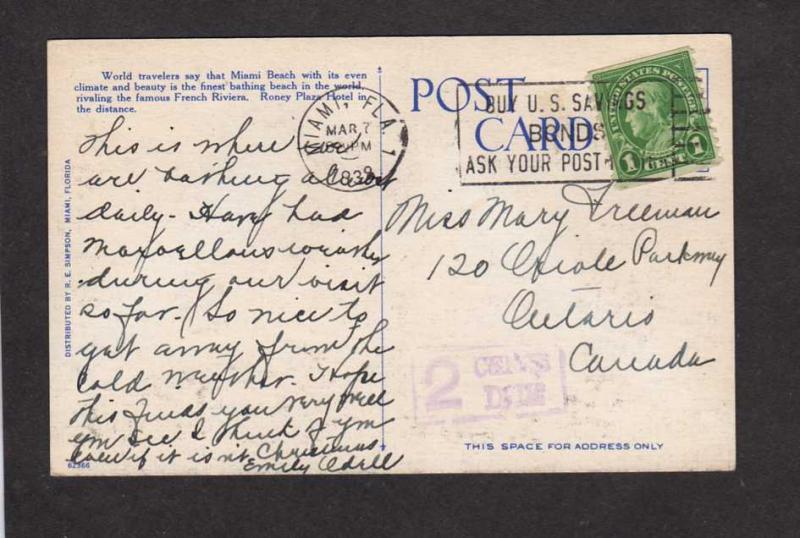 World travelers say that Miami Beach with its even
climate and beauty is the finest bathing beach in the world,
rivaling the famous French Riviera. Roney Plaza Hotel in
the distance.
This is where we
are bathing almost
daily - Have had
marvellous weather
during our visit
so far. So nice to
get away from the
cold weather. Hope
this finds you very well
you see I think of you
even if it isn't Christmas
Emily Odell
62366
DISTRIBUTED BY R. E. SIMPSON, MIAMI, FLORIDA
POST
CARD
MIAMI, FLA.
MAR 7
PM
BUY U.S. SAVINGS
BONDS
ASK YOUR POST
UNITED STATES POSTAGE
1 1
Miss Mary Freeman
120 Oriole Parkway
Ontario
Canada
2 CENTS
DUE
THIS SPACE FOR ADDRESS ONLY